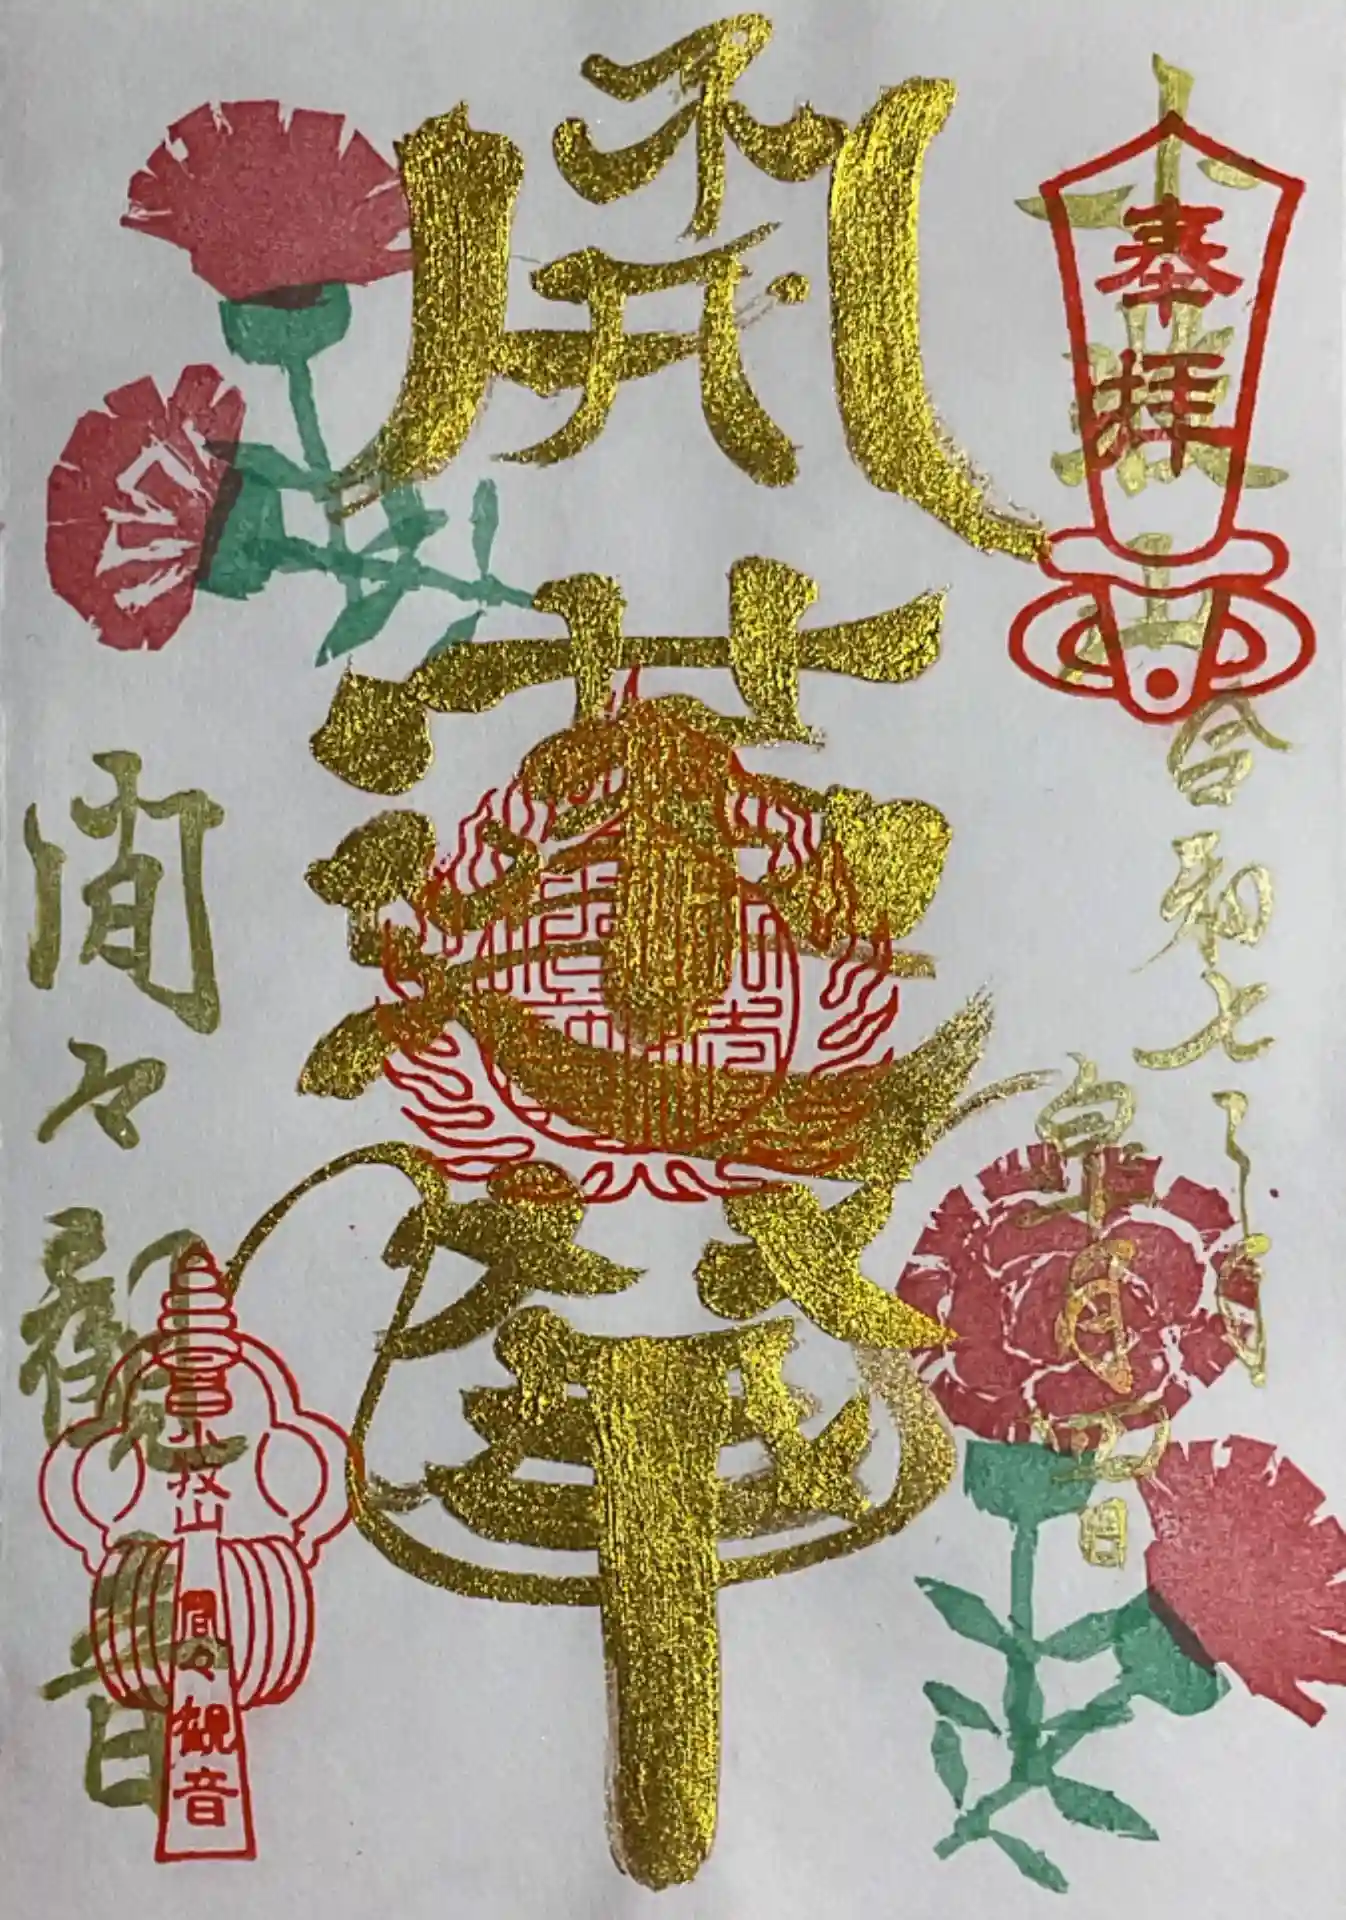 奉拝
令和七年
皐月四日
開
蓮
華
間々観音
小牧山
間々観音